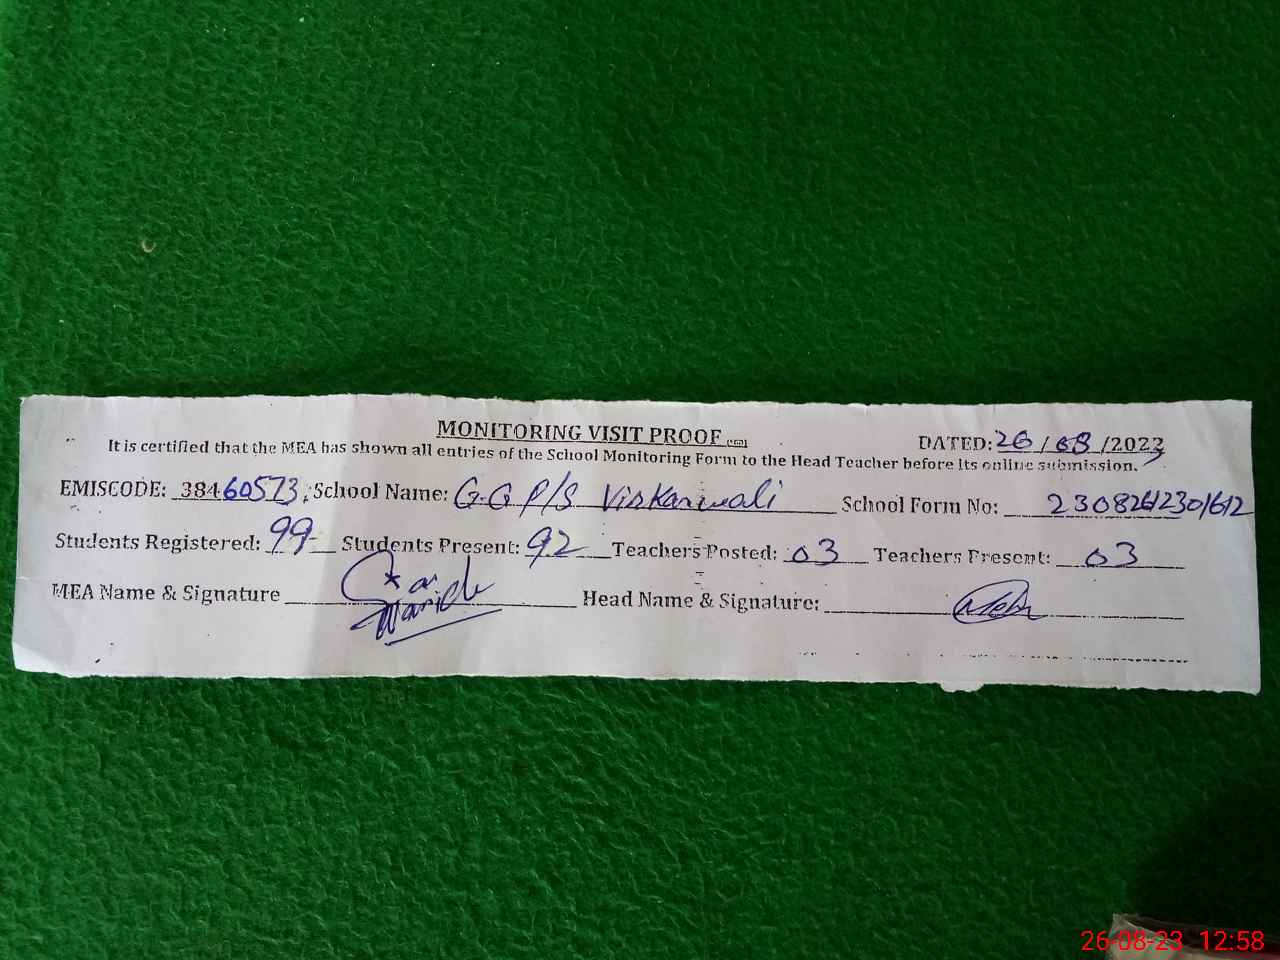 MONITORING VISIT PROOF
DATED: 26/08/2023
It is certified that the MEA has shown all entries of the School Monitoring Form to the Head Teacher before its online submission.
EMISCODE: 38460573, School Name: G.G P/S Viskanwali School Form No:
Students Registered: 99 Students Present: 92 Teachers Posted: 03 Teachers Present: 03
MEA Name & Signature Head Name & Signature:
26-08-23 12:58